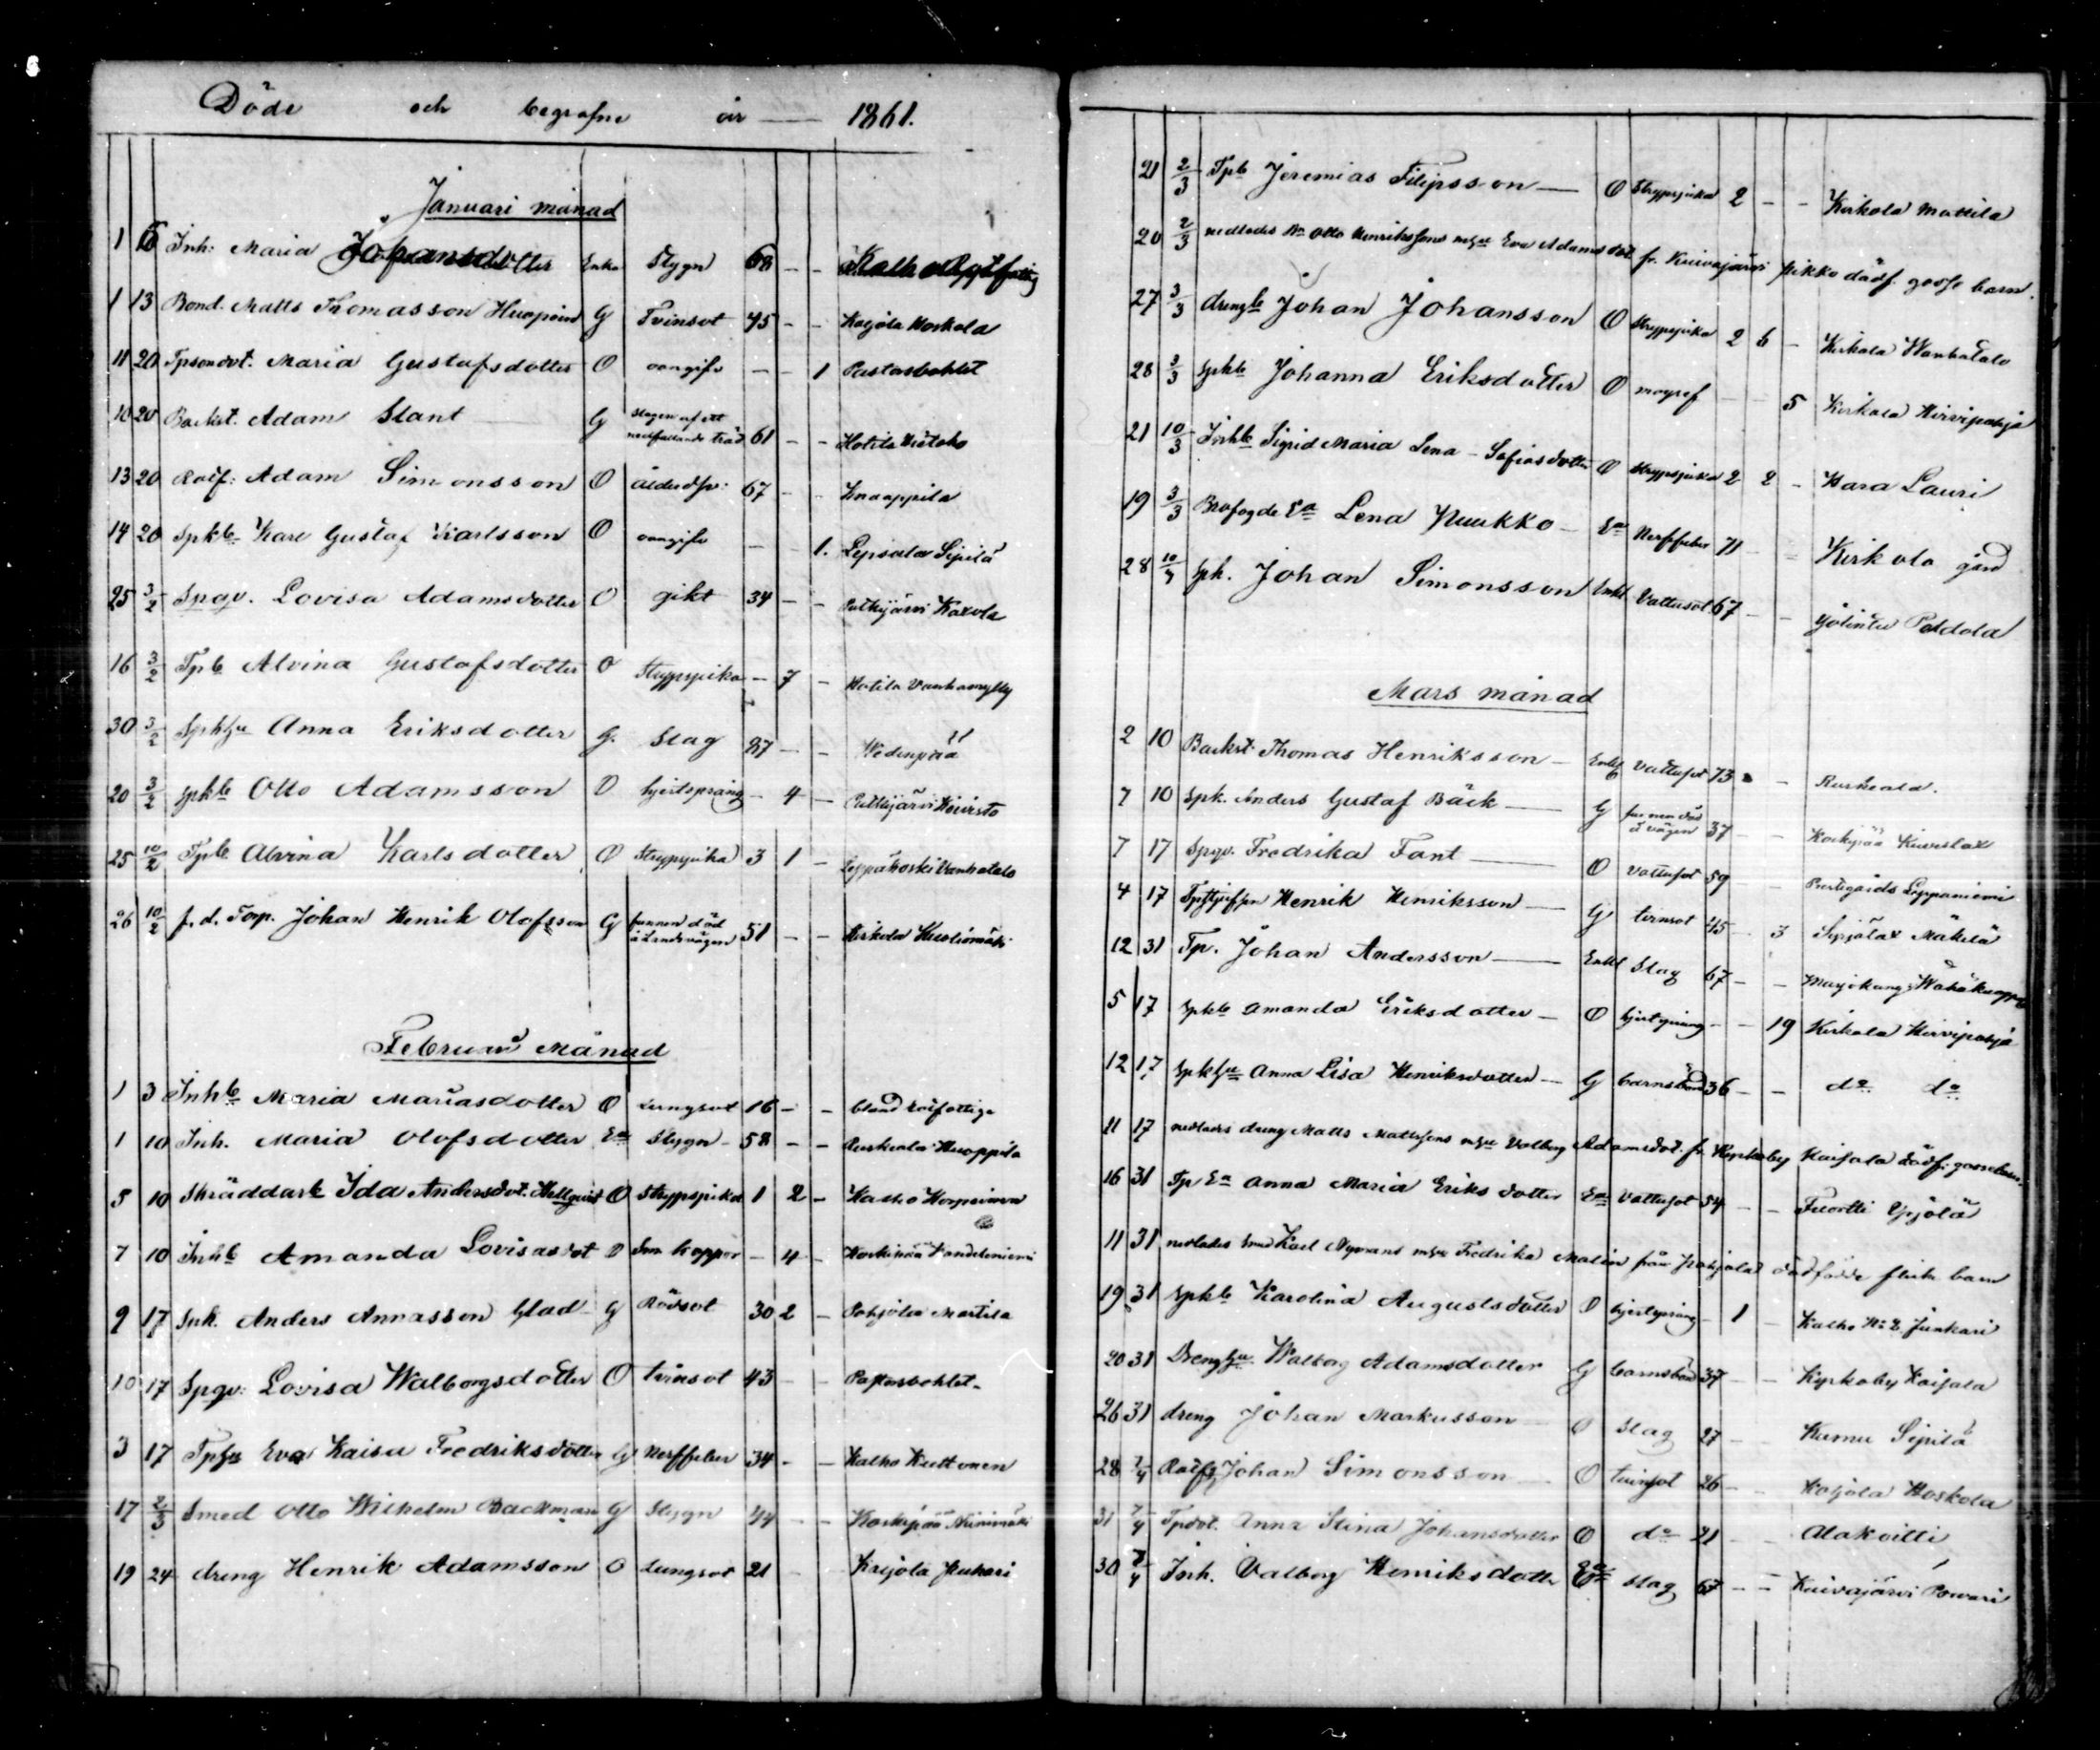 Döde och begrafne år — 1861.
Januari månad
1 6 Inh: Maria Johansdotter Enka Stygn 68 - -
1 13 Bond. Matts Thomasson G Tvinsot 45 - - Kojola Koskola
11 20 Tpsondot. Maria Gustafsdotter O oangifv - - 1 Pastorsbohlet
10 20 Backst. Adam Slant G Slagen af ett nedfallande träd 61 - - Hotila
13 20 Rotf: Adam Simonsson O ålderdfv: 67 - - Knaappila
14 20 Spkb Karl Gustaf Karlsson O oangifv - - 1. Lepsala Sipilä
25 3/2 Spgv. Lovisa Adamsdotter O gikt 34 - - Putkijärvi
16 3/2 Tpb Alvina Gustafsdotter O Strypsjuka - 7 - Hotila Vanhamylly
30 3/2 Spkhu Anna Eriksdotter G. Slag 87 - - Wedenpää
20 3/2 Spkb Otto Adamsson O hjertsprång - 4 - Putkijärvi Koivisto
25 10/2 Tpb Alvina Karlsdotter O Strypsjuka 3 1 - Leppäkoski Vanhatalo
26 10/2 f.d. Torp. Johan Henrik Olofsson G funnen död å Landsvägen 51 - - Kirkola
Februari Månad
1 3 Inhb Maria Mariasdotter O Lungsot 16 - - bland rotfattige
1 10 Inh. Maria Olofsdotter Ea Stygn 58 - - Ruskeala Huoppila
5 10 Skräddarb Ida Andersdot. Hellqvist O Strypsjuka 1 2 - Kalho
7 10 Inhb Amanda Lovisasdot O Sm koppor - 4 - Koskipää
9 17 Spk. Anders Annasson Glad G Rödsot 30 2 - Pohjola Martila
10 17 Spgv: Lovisa Walborgsdotter O tvinsot 43 - - Pastorsbohlet
3 17 Tphu Eva Kaisa Fredriksdotter G Nerffeber 34 - - Kalho Kuttonen
17 2/3 Smed Otto Wilhelm Backman G Stygn 44 - - Koskipää Niinimäki
19 24 dreng Henrik Adamsson O Lungsot 21 - Kojola Junkari
21 2/3 Tpb Jeremias Filipsson O Strypsjuka 2 - - Kirkola Mattila
20 2/3 nedlades Otto Henrikssons Eva Adamsdot fr. Kuivajärvi Pikko dödf. gosse barn.
27 3/3 drengb Johan Johansson O Strypsjuka 2 6 - Kirkola Wanhatalo
28 3/3 Spkb Johanna Eriksdotter O magref - - 5 Kirkola Hirvipohja
21 10/3 Inhb Sigrid Maria Lena - Sofiasdotter O Strypsjuka 2 2 - Kara Lauri
19 3/3 Brofogde Ea Lena Huukko Ea Nerffeber 71 - - Kirkola gård
28 10/3 Spk. Johan Simonsson Enkl Vattusot 67 - - Jölintu Peldola
Mars månad
2 10 Backst. Thomas Henriksson Enkl Vattusot 73 - - Ruskeala.
7 10 Spk. Anders Gustaf Bäck G funnen död å vägen 37 - - Koskipää
7 17 Spgv. Fredrika Fant O Vattusot 59 - - Prestegårds Leppaniemi
4 17 Henrik Henriksson G tvinsot 45 - 3 Sipjälä Mäkelä
12 31 Tp. Johan Andersson Enkl Slag 67 - -
5 17 Spkb Amanda Eriksdotter O hjertsprång - - 19 Kirkola Hirvipohja
12 17 Spkhu Anna Lisa Henriksdotter G barnsbörd 36 - - do do
11 17 nedlades dreng Matts Mattssons Valborg Adamsdot. fr. Kyrkoby Kaijala dödf. gossebarn.
16 31 Tp Ea Anna Maria Eriksdotter Ea Vattusot 54 - -
11 31 nedlades smed Karl Nymans Fredrika Malin från Pohjola dödfödde flick barn
19 31 Spkb Karolina Augustsdotter O hjertsprång - 1 - Kalho No 2 Junkari
20 31 Drenghu Walborg Adamsdotter G barnsbörd 37 - - Kyrkoby Kaijala
26 31 dreng Johan Markusson O Slag 27 - - Kurnu Sipilä
28 7/4 Rotf Johan Simonsson O tvinsot 26 - - Kojola Koskola
31 7/4 Tpdot. Anna Stina Johansdotter O do 21 - Alakoitti
30 7/4 Inh. Valborg Henriksdotter Ea slag 67 - - Kuivajärvi Porvari